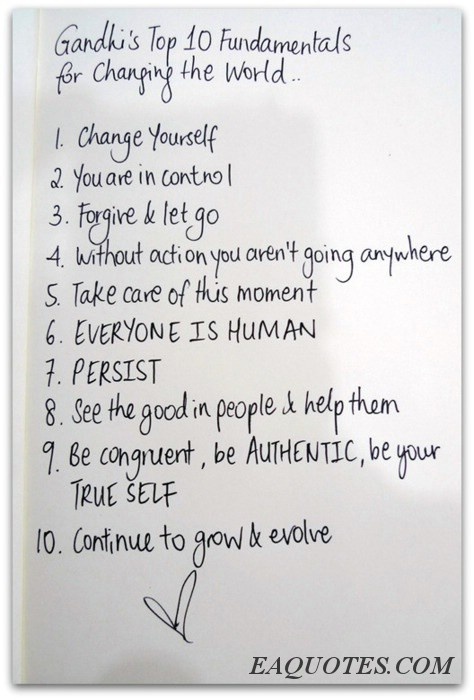 Gandhi's Top 10 Fundamentals
for Changing the World..
1. Change Yourself
2. You are in control
3. Forgive & let go
4. Without action you aren't going anywhere
5. Take care of this moment
6. EVERYONE IS HUMAN
7. PERSIST
8. See the good in people & help them
9. Be congruent, be AUTHENTIC, be your
TRUE SELF
10. Continue to grow & evolve
EAQUOTES.COM